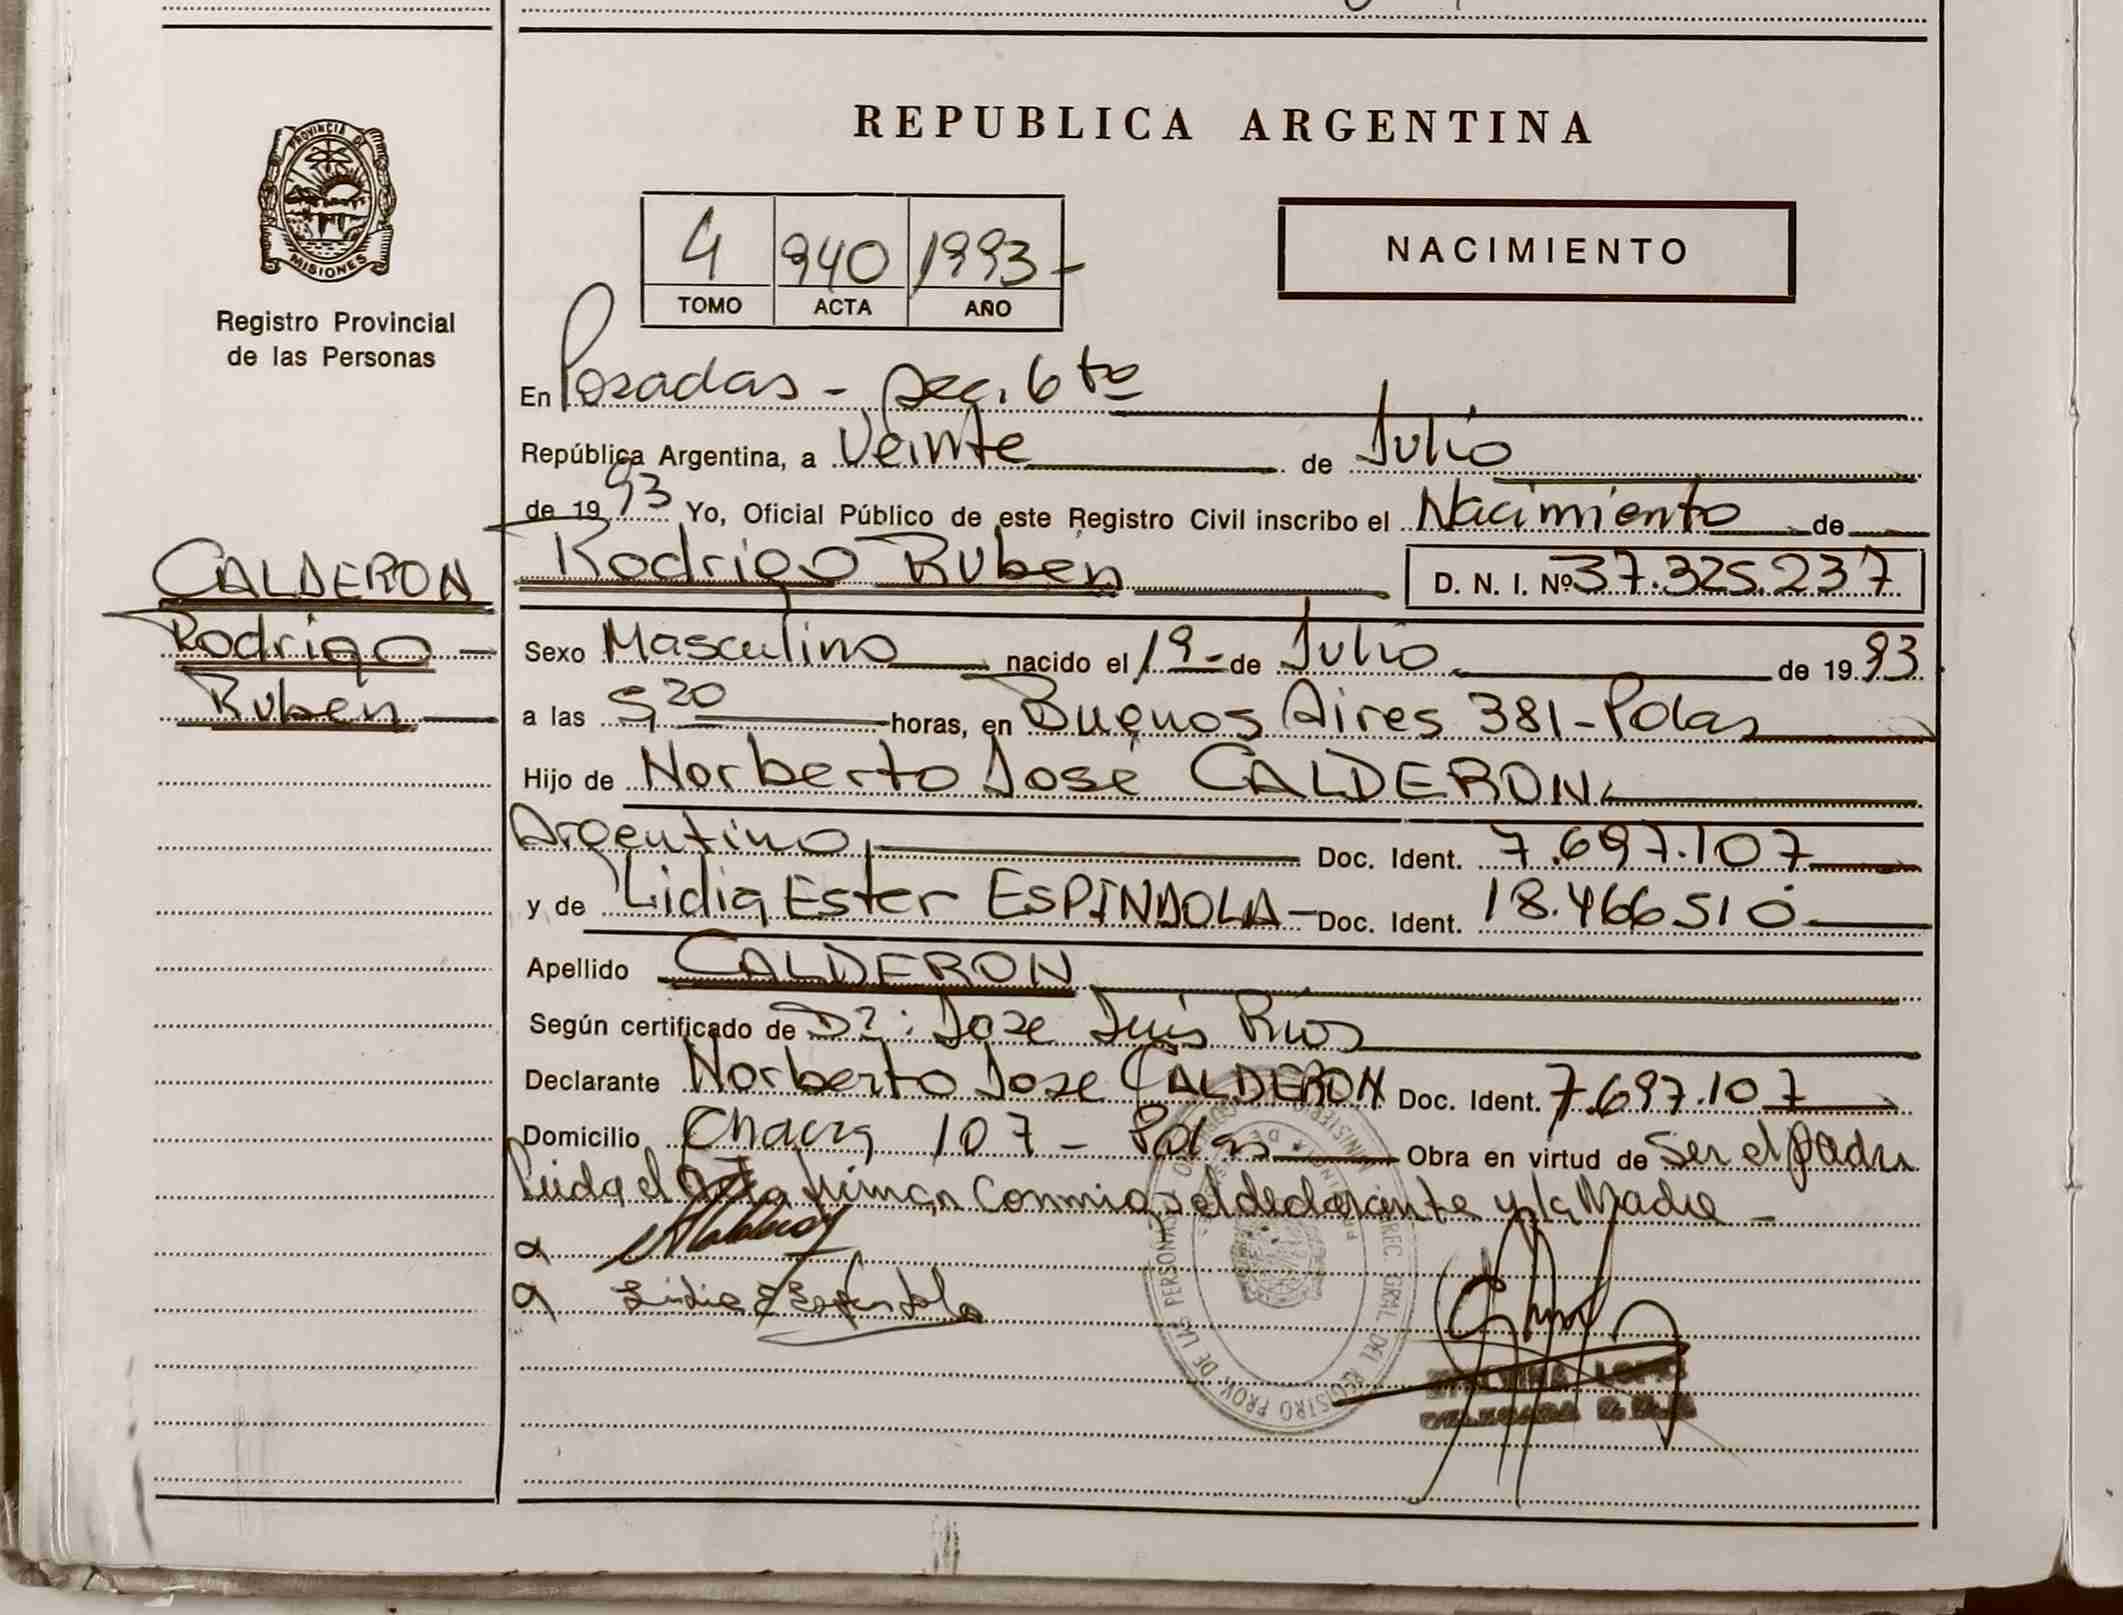 PROVINCIA DE
MISIONES
Registro Provincial
de las Personas
CALDERON
Rodrigo -
Ruben
REPUBLICA ARGENTINA
NACIMIENTO
4 940 1993-
TOMO ACTA AÑO
En Posadas - Sec. 6ta
República Argentina, a Veinte de Julio
de 1993 Yo, Oficial Público de este Registro Civil inscribo el Nacimiento de
Rodrigo Ruben D. N. I. Nº 37.325.237
Sexo Masculino nacido el 19- de Julio de 1993
a las 5,20 horas, en Buenos Aires 381-Pdas
Hijo de Norberto José CALDERON
Argentino Doc. Ident. 7.697.107
y de Lidia Ester ESPINDOLA- Doc. Ident. 18.466510
Apellido CALDERON
Según certificado de Dr: Jose Luis Rios
Declarante Norberto Jose CALDERON Doc. Ident. 7.697.107
Domicilio Chacra 107 - Pdas Obra en virtud de ser el padre
Leida el Acta firman Conmigo el declarante y la Madre -
Lidia E Espindola
DIREC. GRAL. DEL REGISTRO PROV. DE LAS PERSONAS
LOPES
DELEGADA